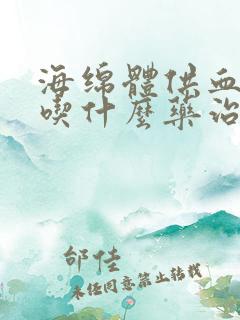 海绵體供血
喫什麽藥治
邰佳
未经同意禁止转载